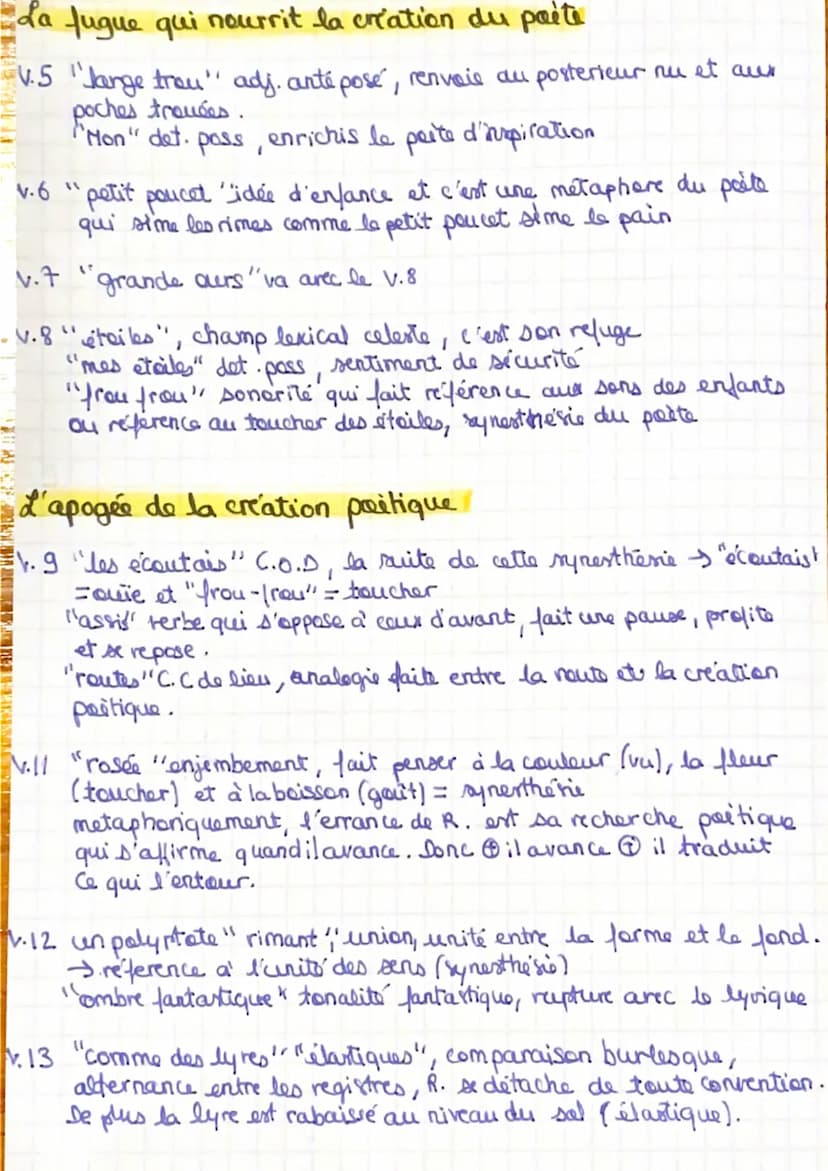 La fugue qui nourrit la création du poète
V.5 "large trou" adj. antéposé, renvoie au posterieur nu et aux
poches trouées.
"Mon" det. poss, enrichis le poète d'inspiration
v.6 "petit poucet" idée d'enfance et c'est une métaphore du poète
qui sème les rimes comme le petit poucet sème le pain
v.7 "grande ours" va avec le v.8
v.8 "étoiles", champ lexical celeste, c'est son refuge
"mes étoiles" det.poss, sentiment de sécurité
"frou frou" sonorité qui fait référence aux sons des enfants
ou réference au toucher des étoiles, synesthésie du poète
L'apogée de la création poétique
v.9 "les écoutais" C.O.D, la suite de cette synesthésie → "écoutais"
=ouïe et "frou-frou" = toucher
"assis" verbe qui s'oppose à ceux d'avant, fait une pause, profite
et se repose.
"routes" C.C de lieu, analogie faite entre la route et la création
poétique.
V.11 "rosée" enjembement, fait penser à la couleur (vu), la fleur
(toucher) et à la boisson (goût) = synesthésie
metaphoriquement, l'errance de R. est sa recherche poétique
qui s'affirme quand il avance. Donc ⊕ il avance ⊕ il traduit
ce qui l'entour.
v.12 un polyptote "rimant", union, unité entre la forme et le fond.
→ réference à l'unité des sens (synesthésie)
"ombre fantastique" tonalité fantastique, rupture avec le lyrique
v.13 "comme des lyres" "élastiques", comparaison burlesque,
alternance entre les registres, R. se détache de toute convention.
De plus la lyre est rabaissé au niveau du sol (élastique).